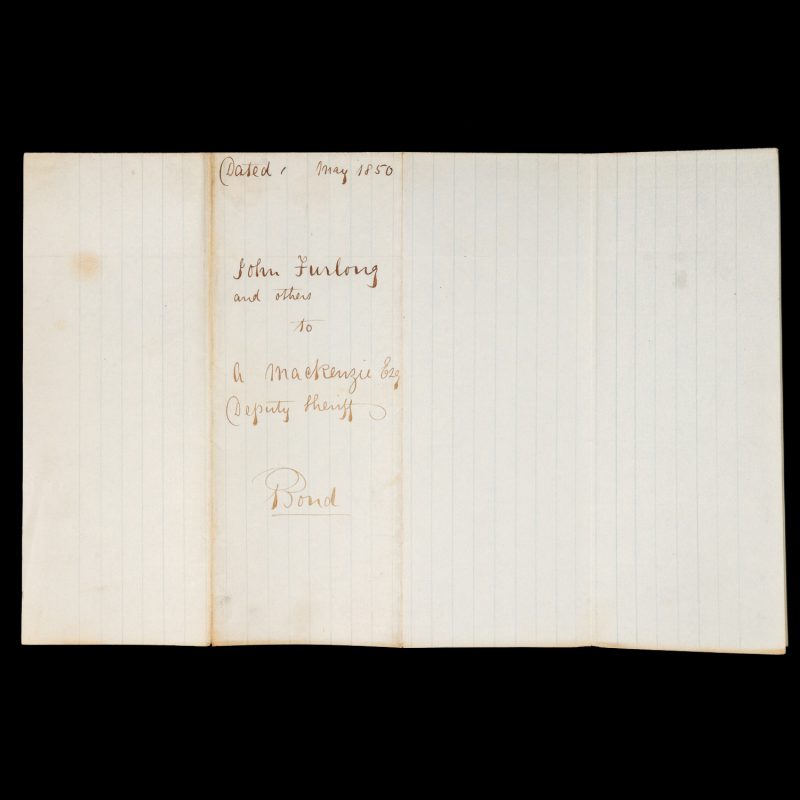 Dated, May 1850
John Furlong
and others
to
A Mackenzie Esq
Deputy Sheriff
Bond